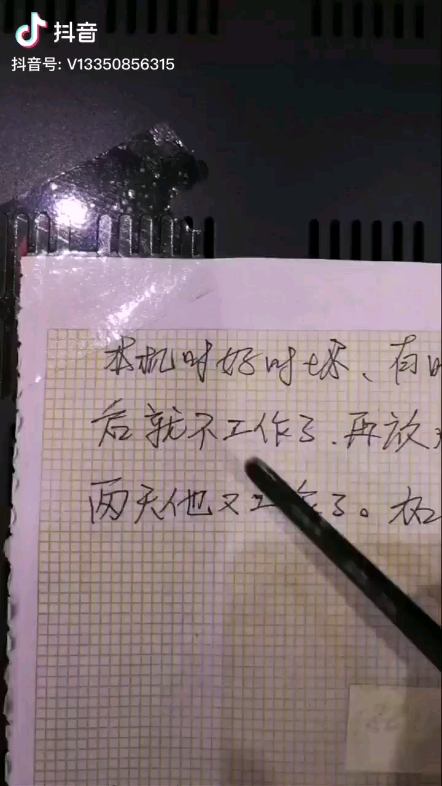 抖音
抖音号: V13350856315
本机时好时坏、有时
后就不工作了.再放
两天他又工作了。